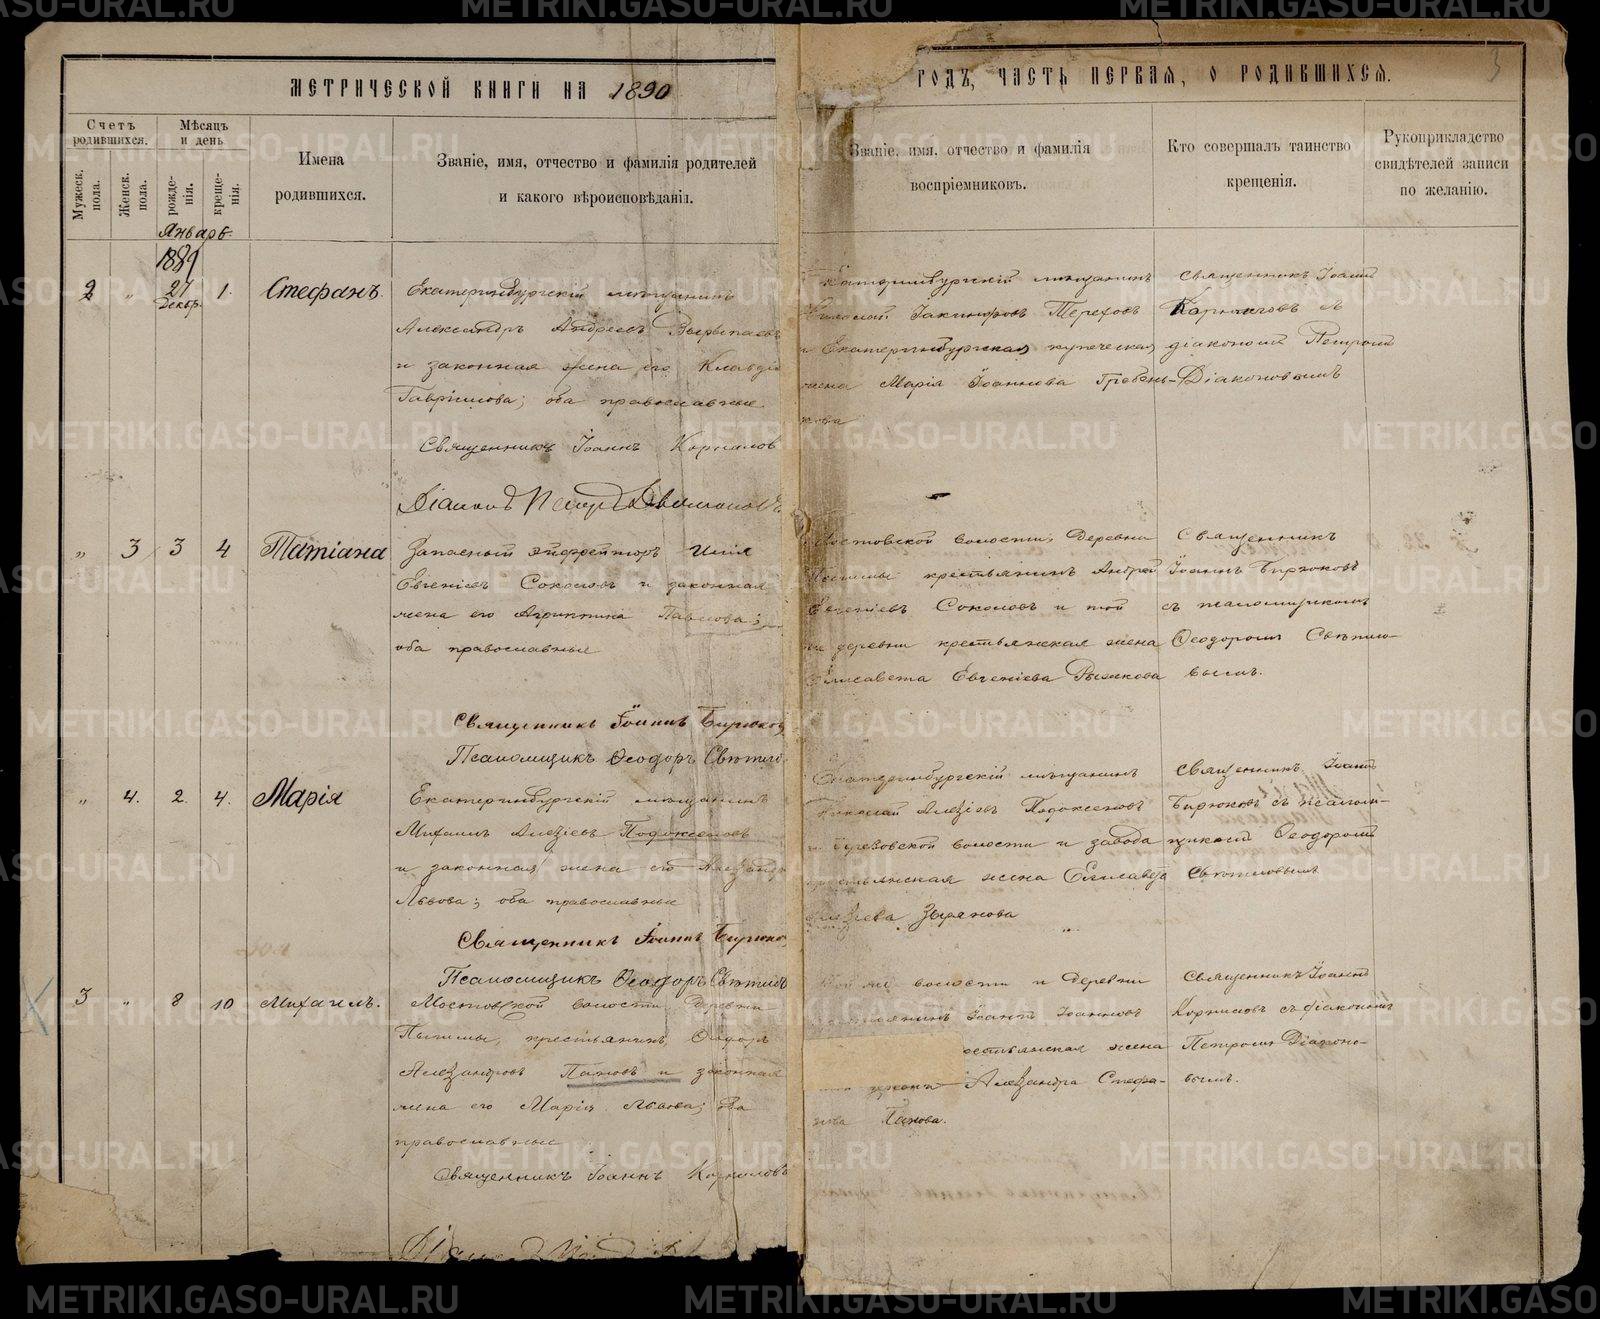 МЕТРИЧЕСКОЙ КНИГИ НА 1890
ГОДЪ, ЧАСТЬ ПЕРВАЯ, О РОДИВШИХСЯ.
Счетъ родившихся.
Мужеск. пола.
Женск. пола.
Мѣсяцъ и день
рожде-
нія.
креще-
нія.
Имена
родившихся.
Званіе, имя, отчество и фамилія родителей
и какого вѣроисповѣданія.
Званіе, имя, отчество и фамилія
воспріемниковъ.
Кто совершалъ таинство
крещенія.
Рукоприкладство
свидѣтелей записи
по желанію.
Январь.
1889
2 " 27 Декбр. 1. Стефанъ.
Екатеринбургскій мѣщанинъ
Александръ Андреевъ
и законная жена его Клавдія
Гавріилова; оба православные
Священникъ Іоаннъ Корниловъ
Діаконъ Петръ Діаконовъ
Екатеринбургскій мѣщанинъ
Николай Іакинфовъ Тереховъ
и Екатеринбургская купеческая
жена Марія Іоаннова Гребень-
кова
Священникъ Іоаннъ
Корниловъ съ
діакономъ Петромъ
Діаконовымъ
" 3 3 4 Татіана
Запасный эйфрейторъ Илія
Евгеніевъ Соколовъ и законная
жена его Агриппина Павлова;
оба православные
Священникъ Іоаннъ Бирюковъ
Псаломщикъ Ѳеодоръ
Мостовской волости, деревни
крестьянинъ Андрей
Евгеніевъ Соколовъ и той
же деревни крестьянская жена
Елисавета Евгеніева Рыжкова
Священникъ
Іоаннъ Бирюковъ
съ псаломщикомъ
Ѳеодоромъ Свѣтло-
вымъ.
" 4. 2. 4. Марія
Екатеринбургскій мѣщанинъ
Михаилъ Алексіевъ Подоксеновъ
и законная жена его
Львова; оба православные
Священникъ Іоаннъ Бирюковъ
Псаломщикъ Ѳеодоръ
Екатеринбургскій мѣщанинъ
Николай Алексіевъ Подоксеновъ
и Березовской волости и завода
крестьянская жена Елисавета
Алексіева Зырянова
Священникъ Іоаннъ
Бирюковъ съ псалом-
щикомъ Ѳеодоромъ
3 " 8 10 Михаилъ.
Мостовской волости, деревни
Пышмы, крестьянинъ Ѳеодоръ
Александровъ Пановъ и законная
жена его Марія Львова; оба
православные
Священникъ Іоаннъ Корниловъ
волости и деревни
Іоаннъ Іоанновъ
жена
Александра Стефа-
нова Панова.
Священникъ Іоаннъ
Корниловъ съ діакономъ
Петромъ Діаконо-
вымъ.
METRIKI.GASO-URAL.RU